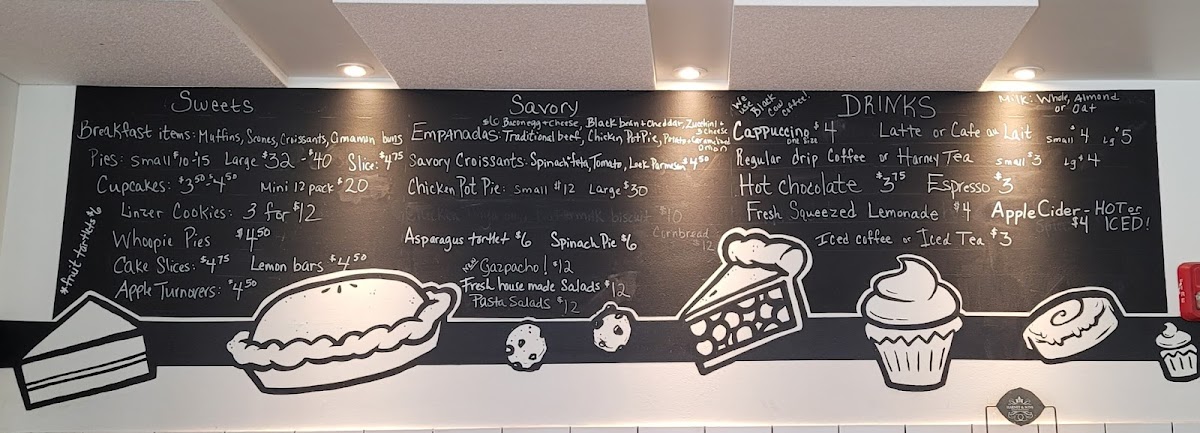 Sweets
Breakfast items: Muffins, Scones, Croissants, Cinnamon buns
Pies: small $10-15 Large $32 - $40 Slice: $4.75
Cupcakes: $3.50-$4.50 Mini 12 pack $20
Linzer Cookies: 3 for $12
Whoopie Pies $4.50
Cake Slices: $4.75 Lemon bars $4.50
Apple Turnovers: $4.50
*fruit tartlets $6
Savory
$6 Bacon egg + cheese, Black bean + Cheddar, Zucchini + cheese
Empanadas: Traditional beef, Chicken Pot Pie, Potato + Caramelized onion
Savory Croissants: Spinach feta, Tomato, Leek Parmesan $4.50
Chicken Pot Pie: small $12 Large $30
buttermilk biscuit $10
Cornbread $12
Asparagus tartlet $6 Spinach Pie $6
NEW Gazpacho! $12
Fresh house made Salads $12
Pasta Salads $12
We use Black Cow coffee!
DRINKS
Milk: Whole, Almond or Oat
Cappuccino one size $4 Latte or Cafe au Lait small $4 Lg $5
Regular drip Coffee or Harney Tea small $3 Lg $4
Hot chocolate $3.75 Espresso $3
Fresh Squeezed Lemonade $4 Apple Cider - HOT or ICED! $4
Iced coffee or Iced Tea $3